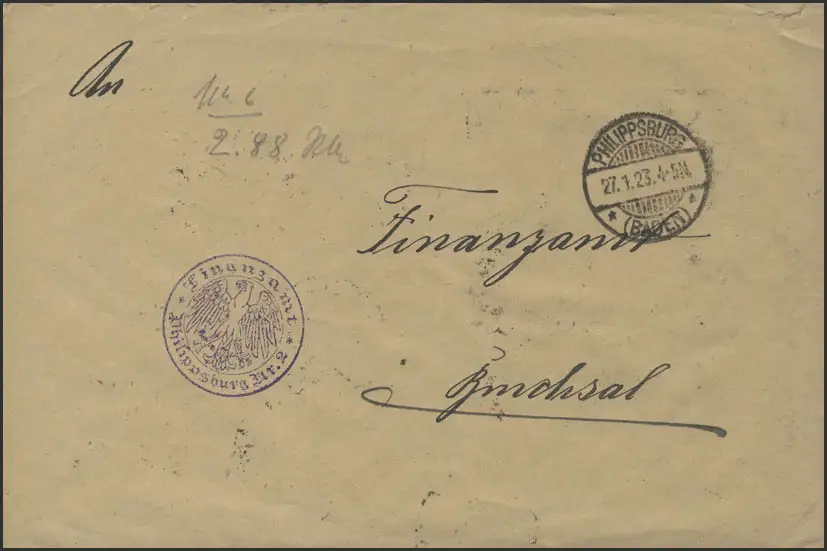 An
2.88
PHILIPPSBURG
27.1.23.4-5N.
(BADEN)
Finanzamt
Finanzamt
Philippsburg Nr. 2
Bruchsal